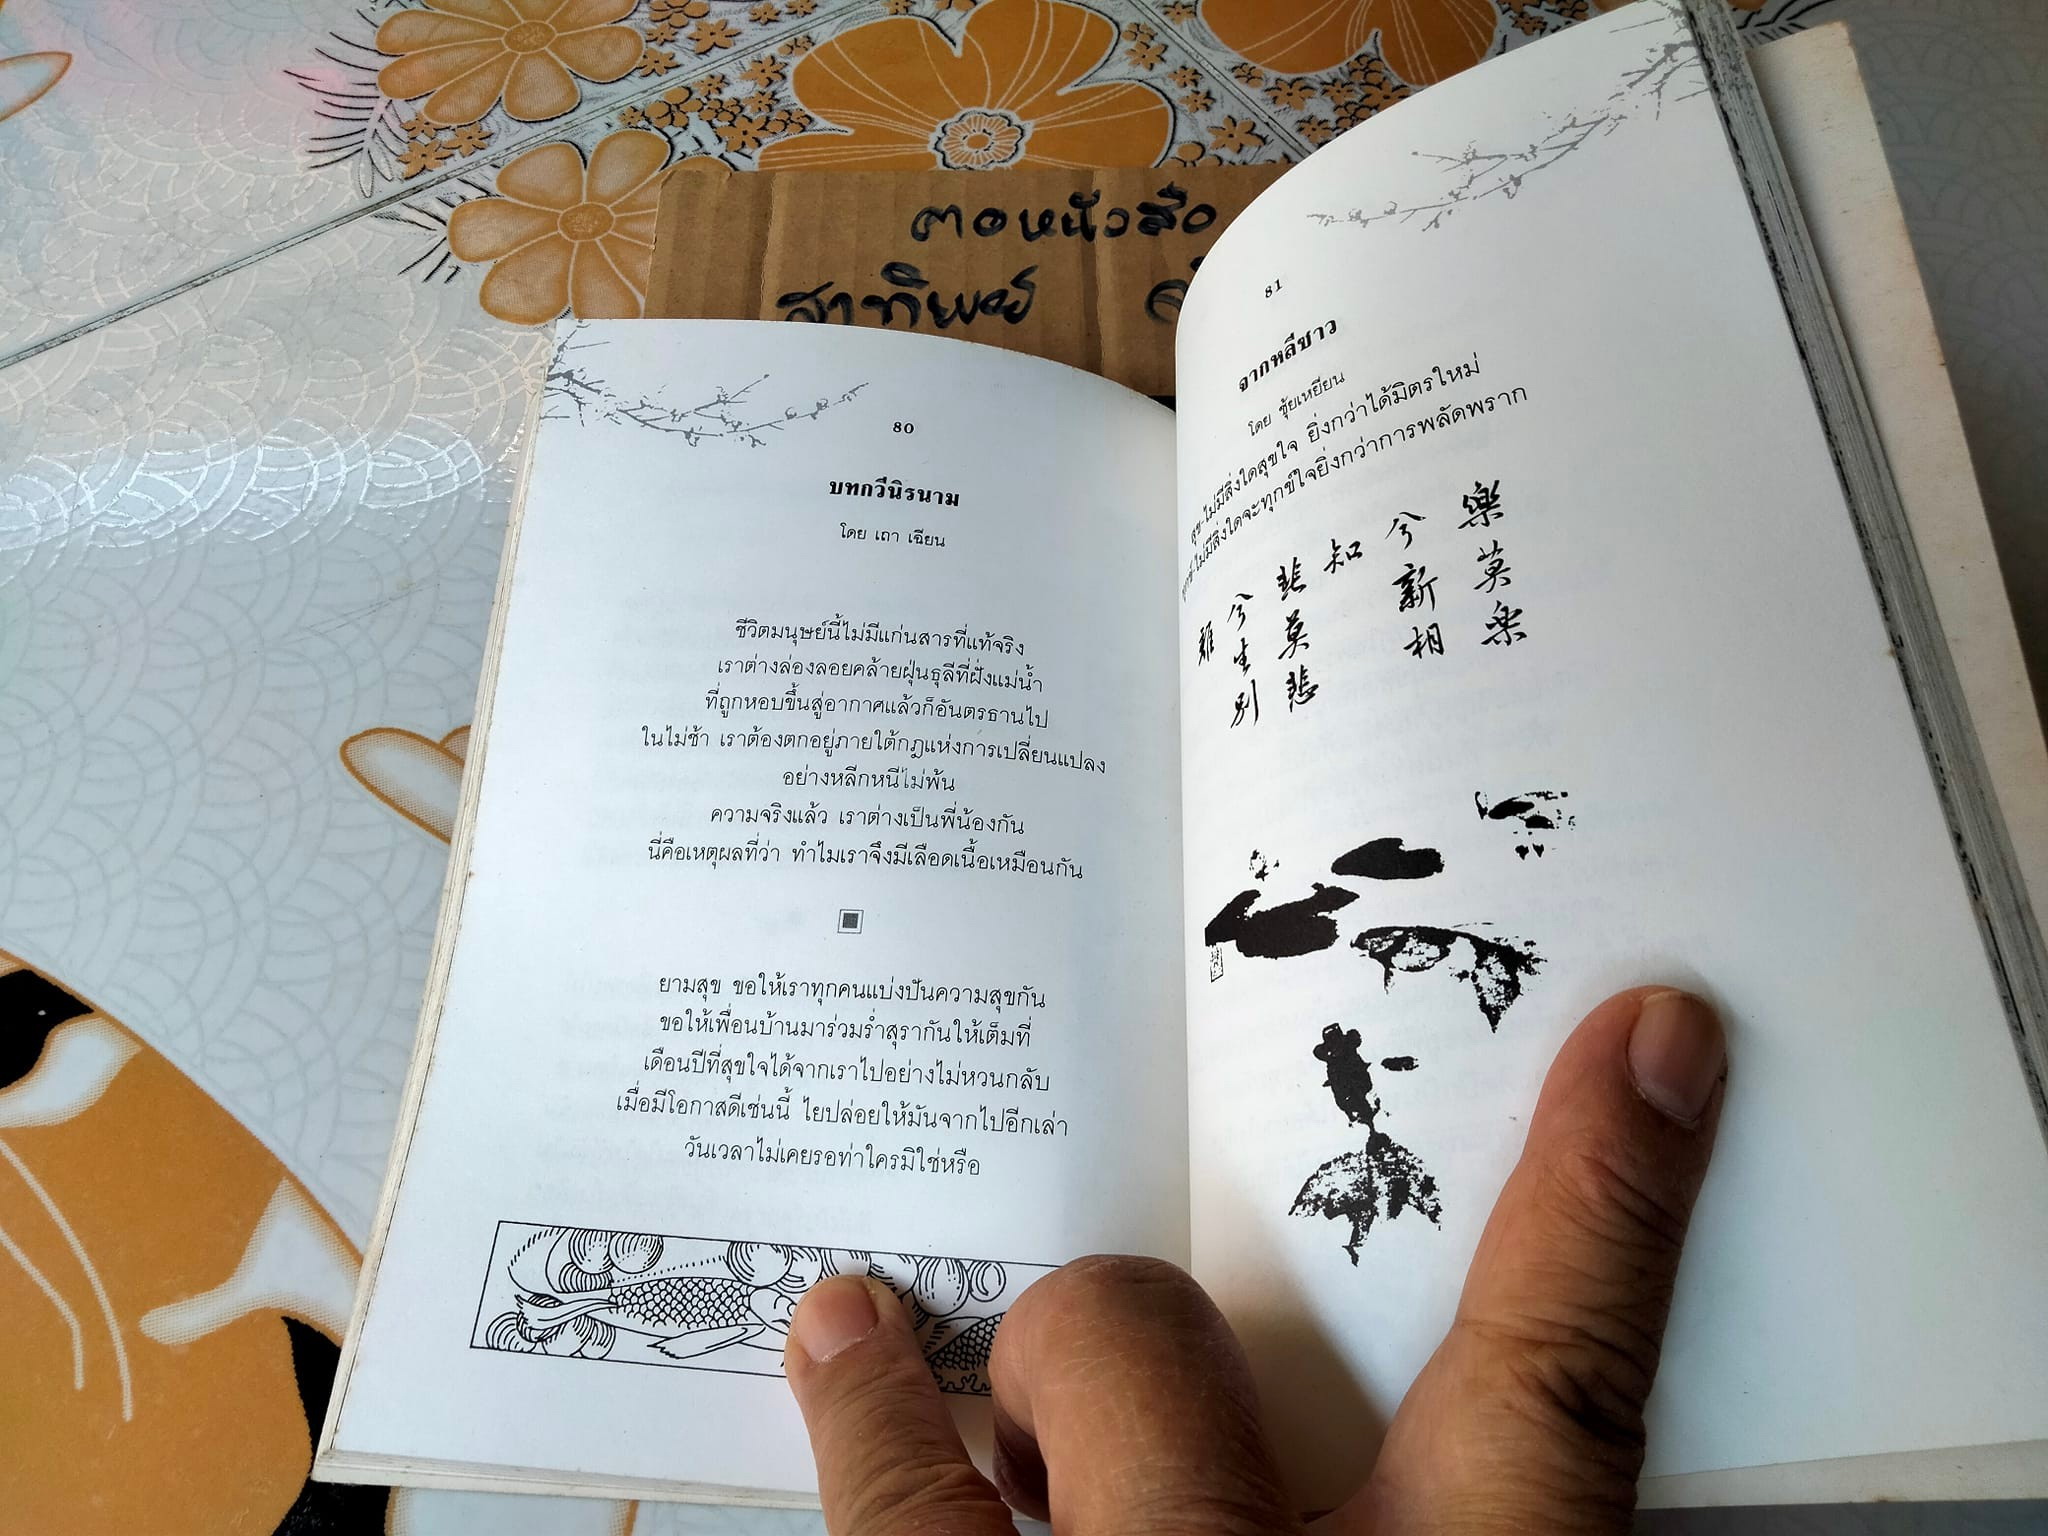 ตอหนังสือ
สาทิพย์
80
บทกวีนิรนาม
โดย เถา เฉียน
ชีวิตมนุษย์นี้ไม่มีแก่นสารที่แท้จริง
เราต่างล่องลอยคล้ายฝุ่นธุลีที่ฝั่งแม่น้ำ
ที่ถูกหอบขึ้นสู่อากาศแล้วก็อันตรธานไป
ในไม่ช้า เราต้องตกอยู่ภายใต้กฎแห่งการเปลี่ยนแปลง
อย่างหลีกหนีไม่พ้น
ความจริงแล้ว เราต่างเป็นพี่น้องกัน
นี่คือเหตุผลที่ว่า ทำไมเราจึงมีเลือดเนื้อเหมือนกัน
ยามสุข ขอให้เราทุกคนแบ่งปันความสุขกัน
ขอให้เพื่อนบ้านมาร่วมร่ำสุรากันให้เต็มที่
เดือนปีที่สุขใจได้จากเราไปอย่างไม่หวนกลับ
เมื่อมีโอกาสดีเช่นนี้ ไยปล่อยให้มันจากไปอีกเล่า
วันเวลาไม่เคยรอท่าใครมิใช่หรือ
81
จากหลีซาว
โดย ชุ้ยเหยียน
สุข-ไม่มีสิ่งใดสุขใจ ยิ่งกว่าได้มิตรใหม่
ทุกข์-ไม่มีสิ่งใดจะทุกข์ใจยิ่งกว่าการพลัดพราก
樂莫樂
兮新相
知
悲莫悲
兮生別
離